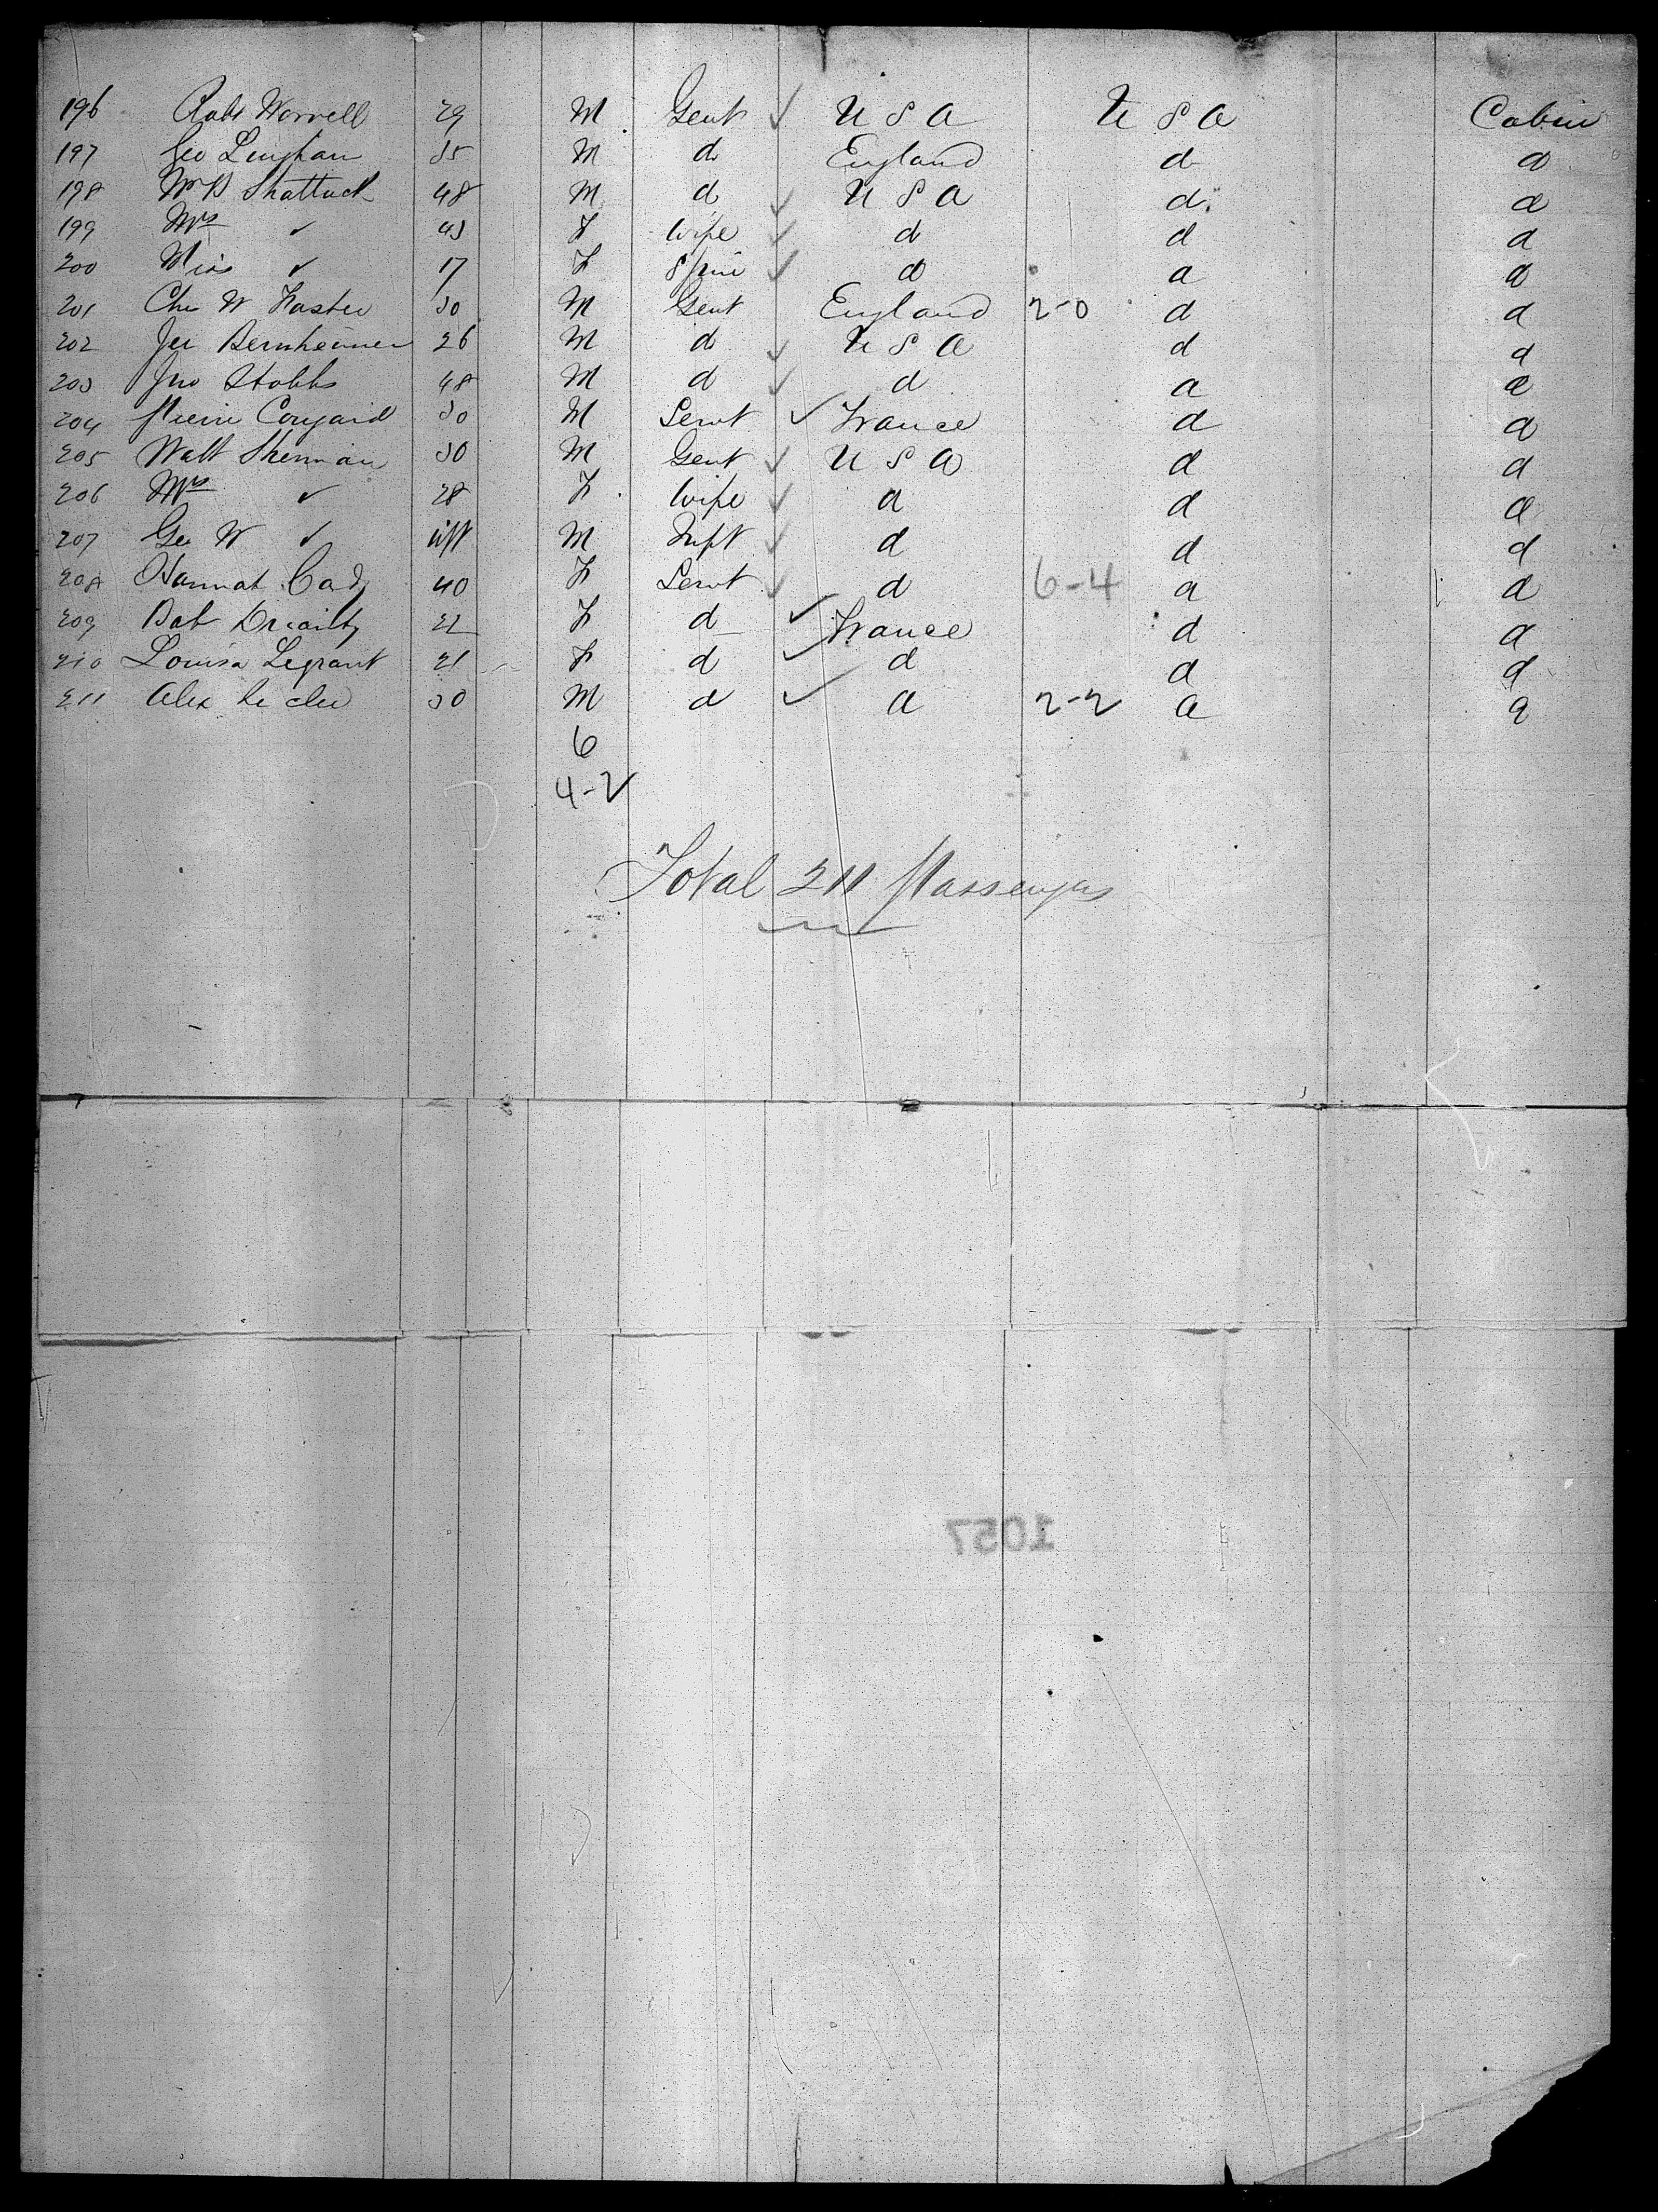 196 Robt Worrell 29 M Gent ✓ U S A U S A Cabin
197 Geo Lingham 35 M d England d d
198 Wm B Shattuck 48 M d ✓ U S A d d
199 Mrs ✓ 43 F Wife ✓ d d d
200 Miss ✓ 17 F Spin ✓ d d d
201 Chs W 30 M Gent England 2-0 d d
202 Jer Bernheimer 26 M d ✓ U S A d d
203 Jno Stobbs 48 M d ✓ d d d
204 Pierre 30 M Servt ✓ France d d
205 Walt Sherman 30 M Gent ✓ U S A d d
206 Mrs ✓ 28 F Wife ✓ d d d
207 Geo W ✓ inft M Inft ✓ d d d
208 Hannah Cady 40 F Servt ✓ d 6-4 d d
209 Bab 22 F d ✓ France d d
210 Louisa Legrant 21 F d ✓ d d d
211 Alex 30 M d ✓ d 2-2 d d
6
4-2
Total 211 Passengers
1057